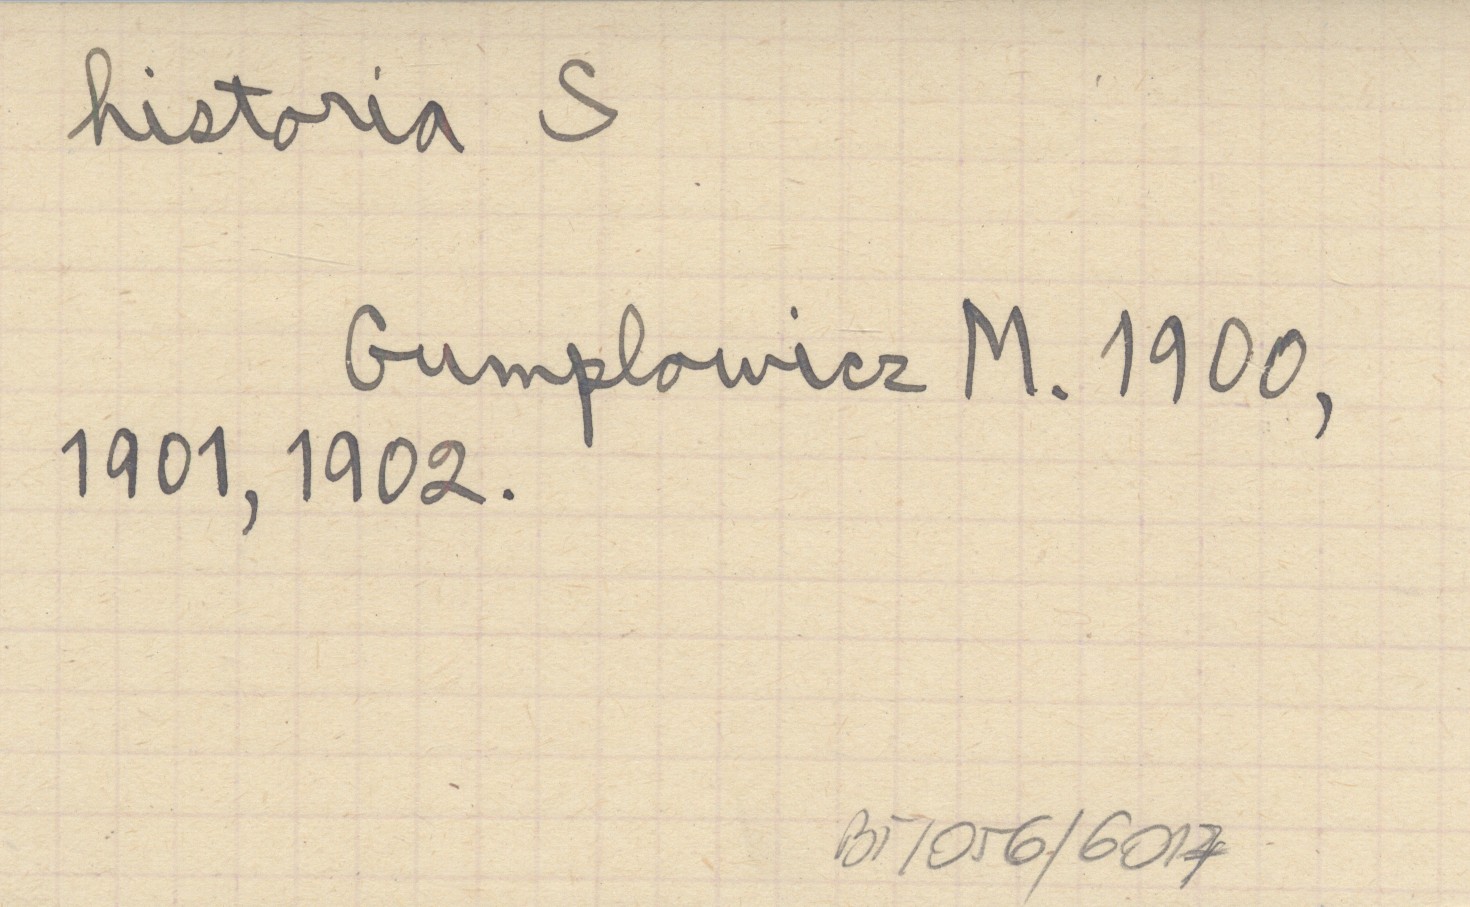 historia S
Gumplowicz M. 1900,
1901, 1902.
BF/056/6017